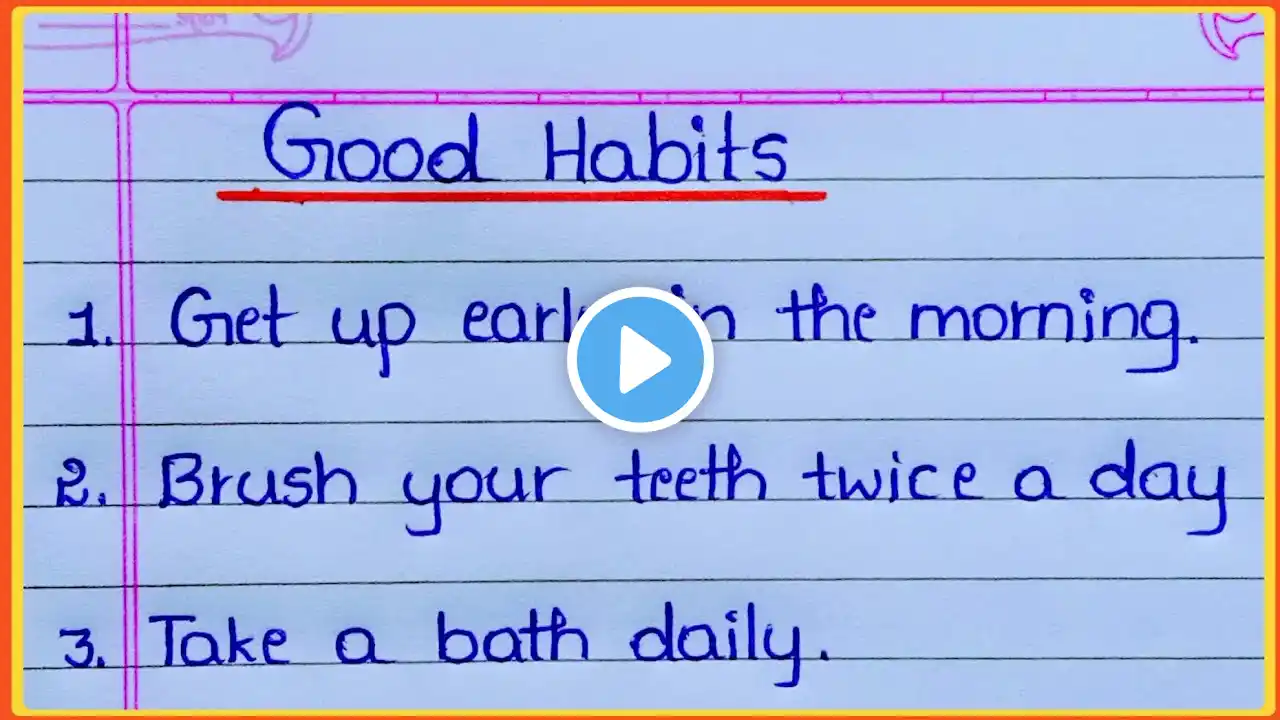 Good Habits
1. Get up early in the morning.
2. Brush your teeth twice a day
3. Take a bath daily.